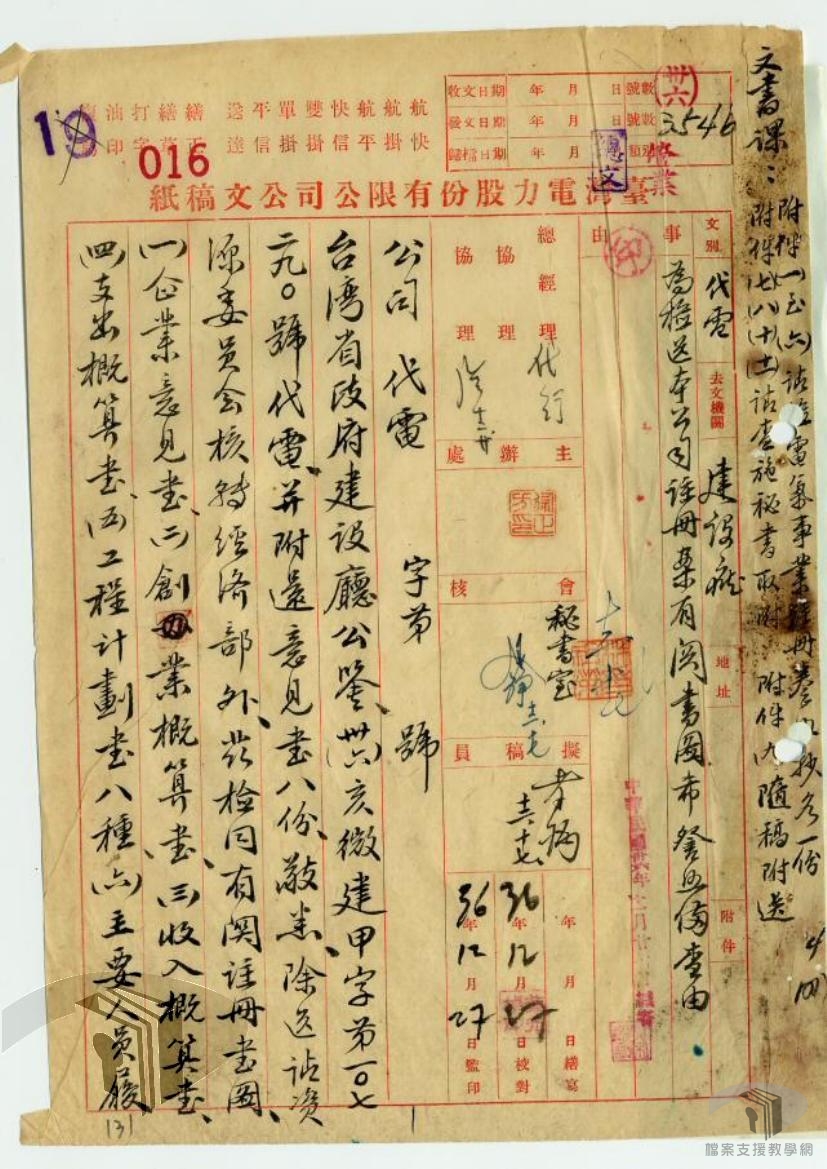 文書課：附件(一)至(六)請
附件(七)(八)(十)(土)請查施秘書取附 附件(九)隨稿附送
抄各一份
卅六
3546
收文日期 年 月 日 號數
發文日期 年 月 日 號數
歸檔日期 年 月 日 類別
航快
航掛
航平
快信
雙掛
單掛
平信
送達
繕正
繕
打字
油印
19
016
臺灣電力股份有限公司公文稿紙
文別 代電 去文機關 建設廳 地址 附件
事由 為檢送本公司註冊案有関書圖希詧照備查由
印
中華民國
總經理 代行
協理
協理
主辦處
會核 秘書室
擬稿員
年 月 日繕寫
36年12月27日校對
36年12月27日監印
公司 代電 字第 號
台湾省政府建設廳公鑒(卅六)亥微建甲字第一〇七
二九〇號代電并附還意見書八份敬悉除送請資
源委員会核轉經済部外茲檢同有関註冊書圖
(一)企業意見書(二)創業概算書(三)收入概算書
(四)支出概算書(五)工程計劃書八種(六)主要人員履
131
檔案支援教學網